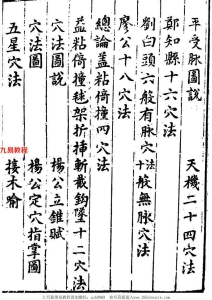 平受脉圖說 天機二十四穴法
鄭知縣十六穴法
劉白頭六般有脉穴法 十般無脉穴法
廖公十八穴法
總論蓋粘倚撞四穴法
蓋粘倚撞毬架折挿斬截鈎墜十二穴法
穴法圖說 楊公立錐賦
穴法圖 楊公定穴指掌圖
五星穴法 接木喻
九易教程